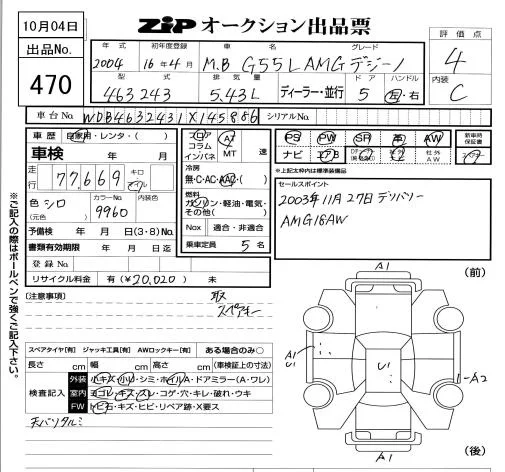 10月04日
ZIP オークション出品票
出品No.
470
評価点
4
内装
C
年式 初年度登録 車名 グレード
2004 16年4月 M.B G55L AMG デジーノ
型式 排気量 ドア ハンドル
463243 5.43L ディーラー・並行 5 左・右
車台No. WDB4632431X145886 シリアルNo.
車歴 自家用・レンタ・( )
車検 年 月
走行 77,669 キロ マイル
色 シロ (元色) カラーNo. 9960 内装色
予備検 年 月 日(3・8)No.
書類有効期限 年 月 日迄
登録No.
リサイクル料金 有(¥20,020) 未
フロア コラム インパネ AT MT 速
冷房
無・C・AC・AAC・( )
燃料
ガソリン・軽油・電気・その他( )
Nox 適合・非適合
乗車定員 5 名
PS PW SR 革 AW
ナビ エアB
新車時保証書
※上記太枠内は標準装備品
セールスポイント
2003年11月27日デリバリー
AMG18AW
※ご記入の際はボールペンで強くご記入下さい。
[注意事項]
取
スペアキー
スペアタイヤ[有] ジャッキ工具[有] AWロックキー[有] ある場合のみ〇
長さ cm 幅 cm 高さ cm (車検証上の寸法)
検査記入
外装 小キズ・小U・シミ・ホイルA・ドアミラー(A・ワレ)
室内 ヨゴレ・キズ・スレ・コゲ・穴・キレ・破れ・ウキ
FW トビ石・キズ・ヒビ・リペア跡・X要ス
天バリタルミ
A1
(前)
A1
U
U1
A2
A1
(後)